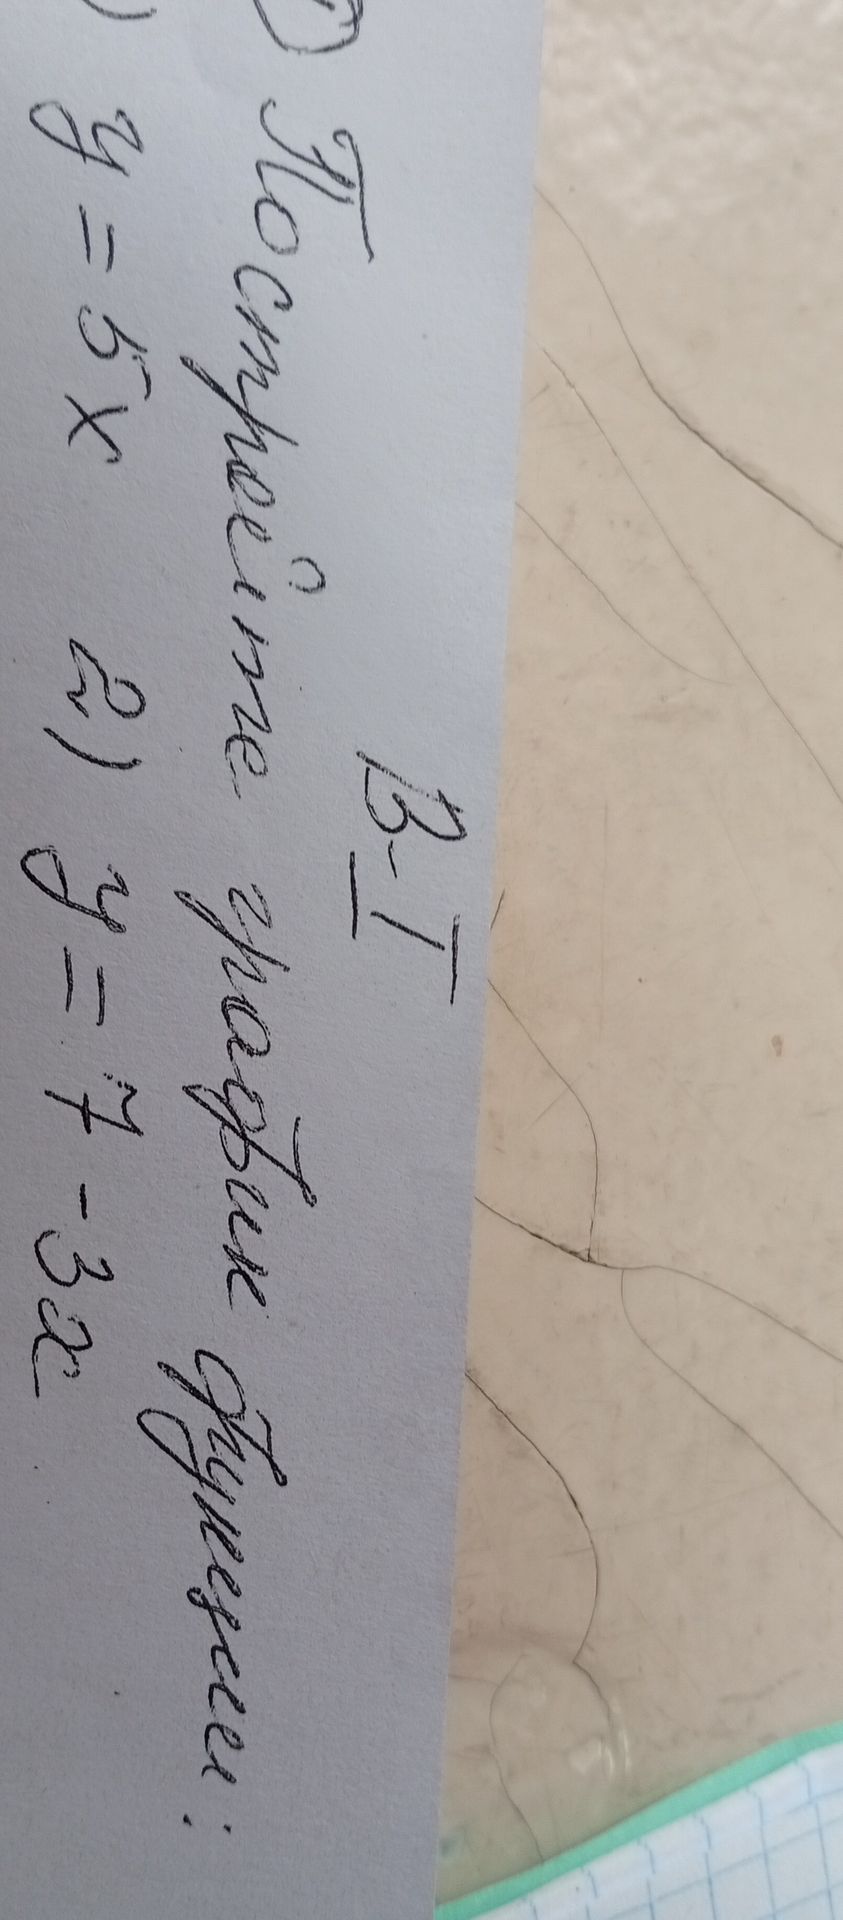 В-I
1) Постройте график функции:
1) y = 5x 2) y = 7 - 3x